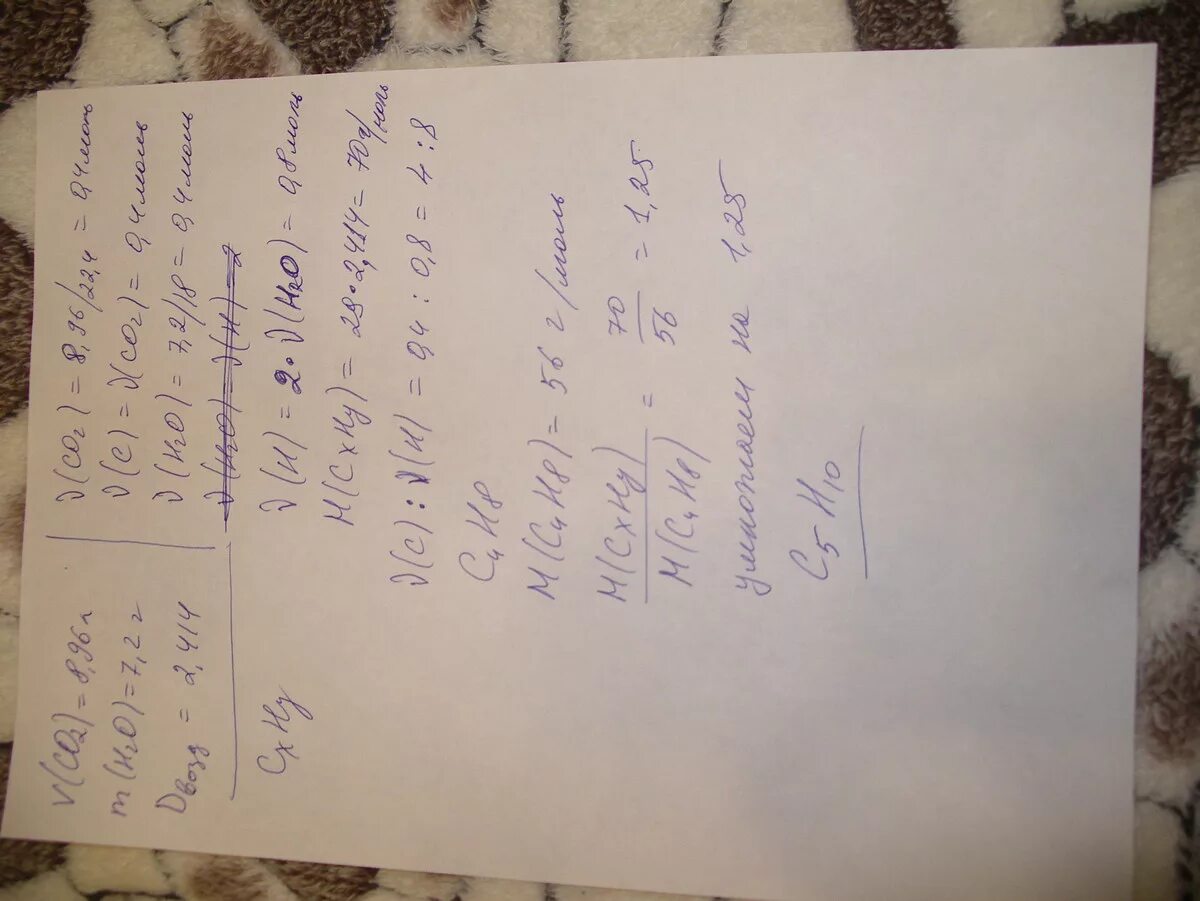 V(CO2)=8,96л
m(H2O)=7,2г
Dвозд = 2,414
CxHy
ν(CO2) = 8,96/22,4 = 0,4моль
ν(C) = ν(CO2) = 0,4моль
ν(H2O) = 7,2/18 = 0,4моль
ν(H2O) = ν(H) = 2
ν(H) = 2·ν(H2O) = 0,8моль
M(CxHy) = 29·2,414 = 70г/моль
ν(C) : ν(H) = 0,4 : 0,8 = 4 : 8
C4H8
M(C4H8) = 56 г/моль
M(CxHy)/M(C4H8) = 70/56 = 1,25
умножаем на 1,25
C5H10